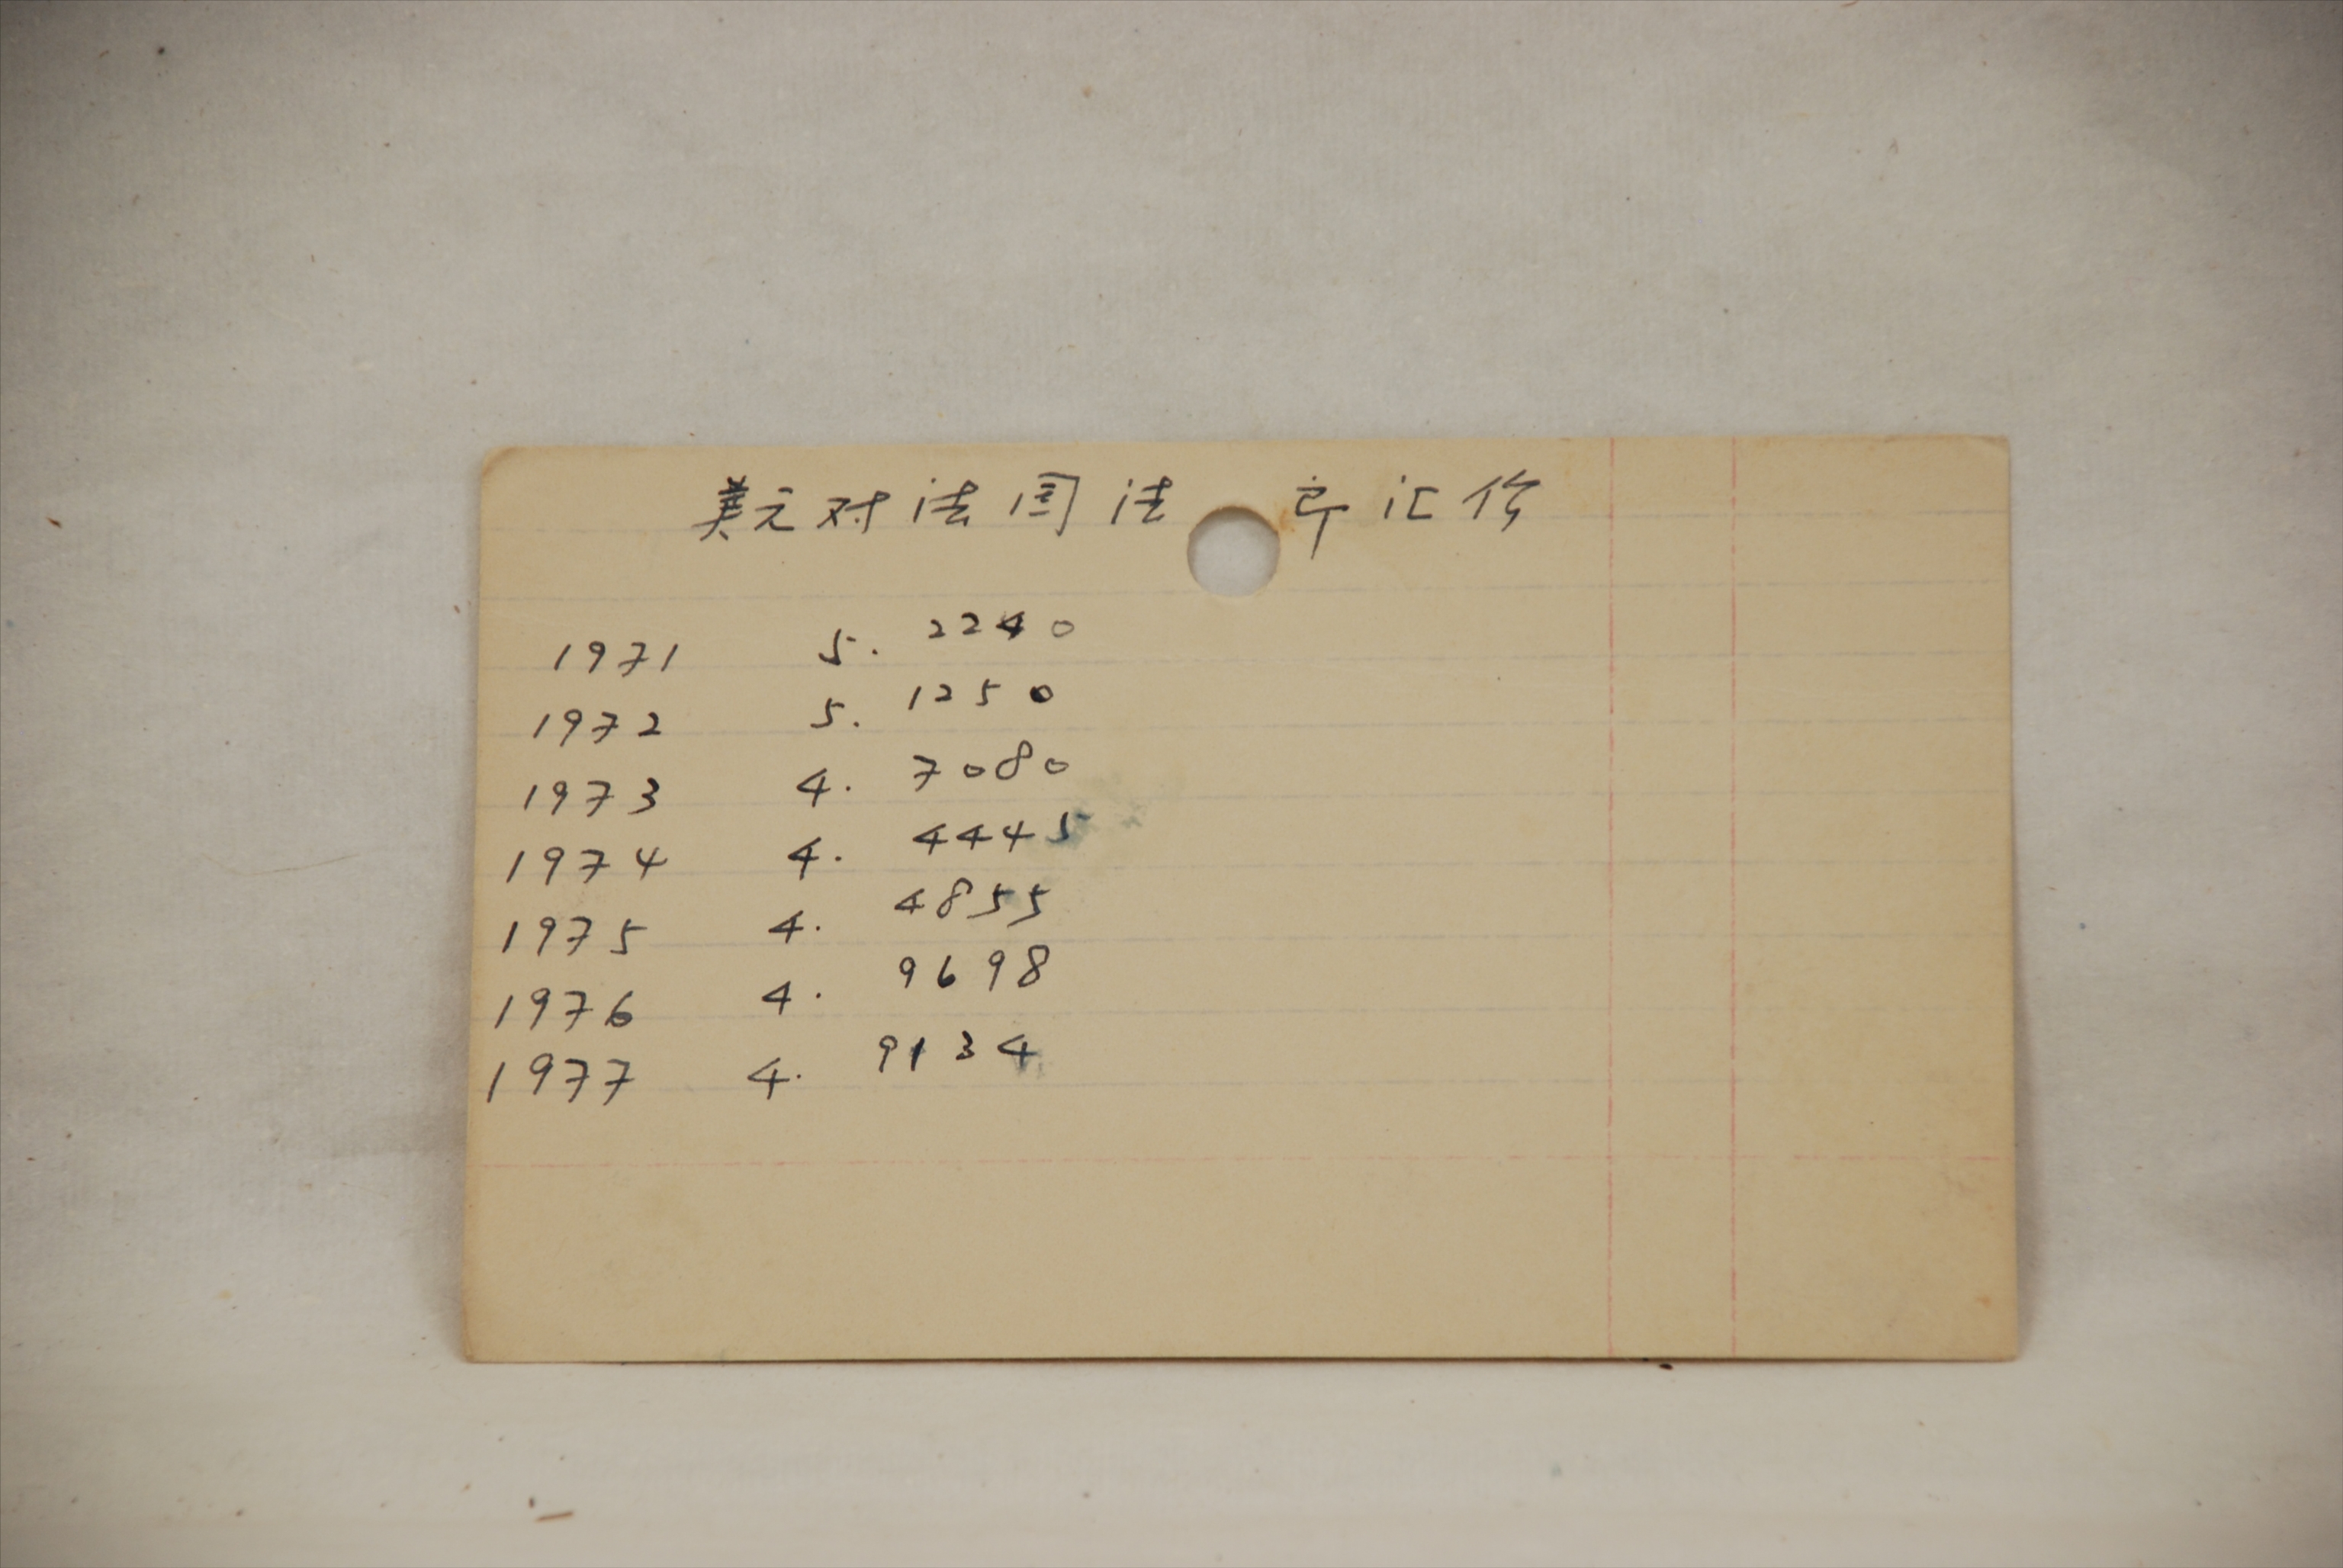 美元对法国法郎汇价
1971 5.2240
1972 5.1250
1973 4.7080
1974 4.4445
1975 4.4855
1976 4.9698
1977 4.9134